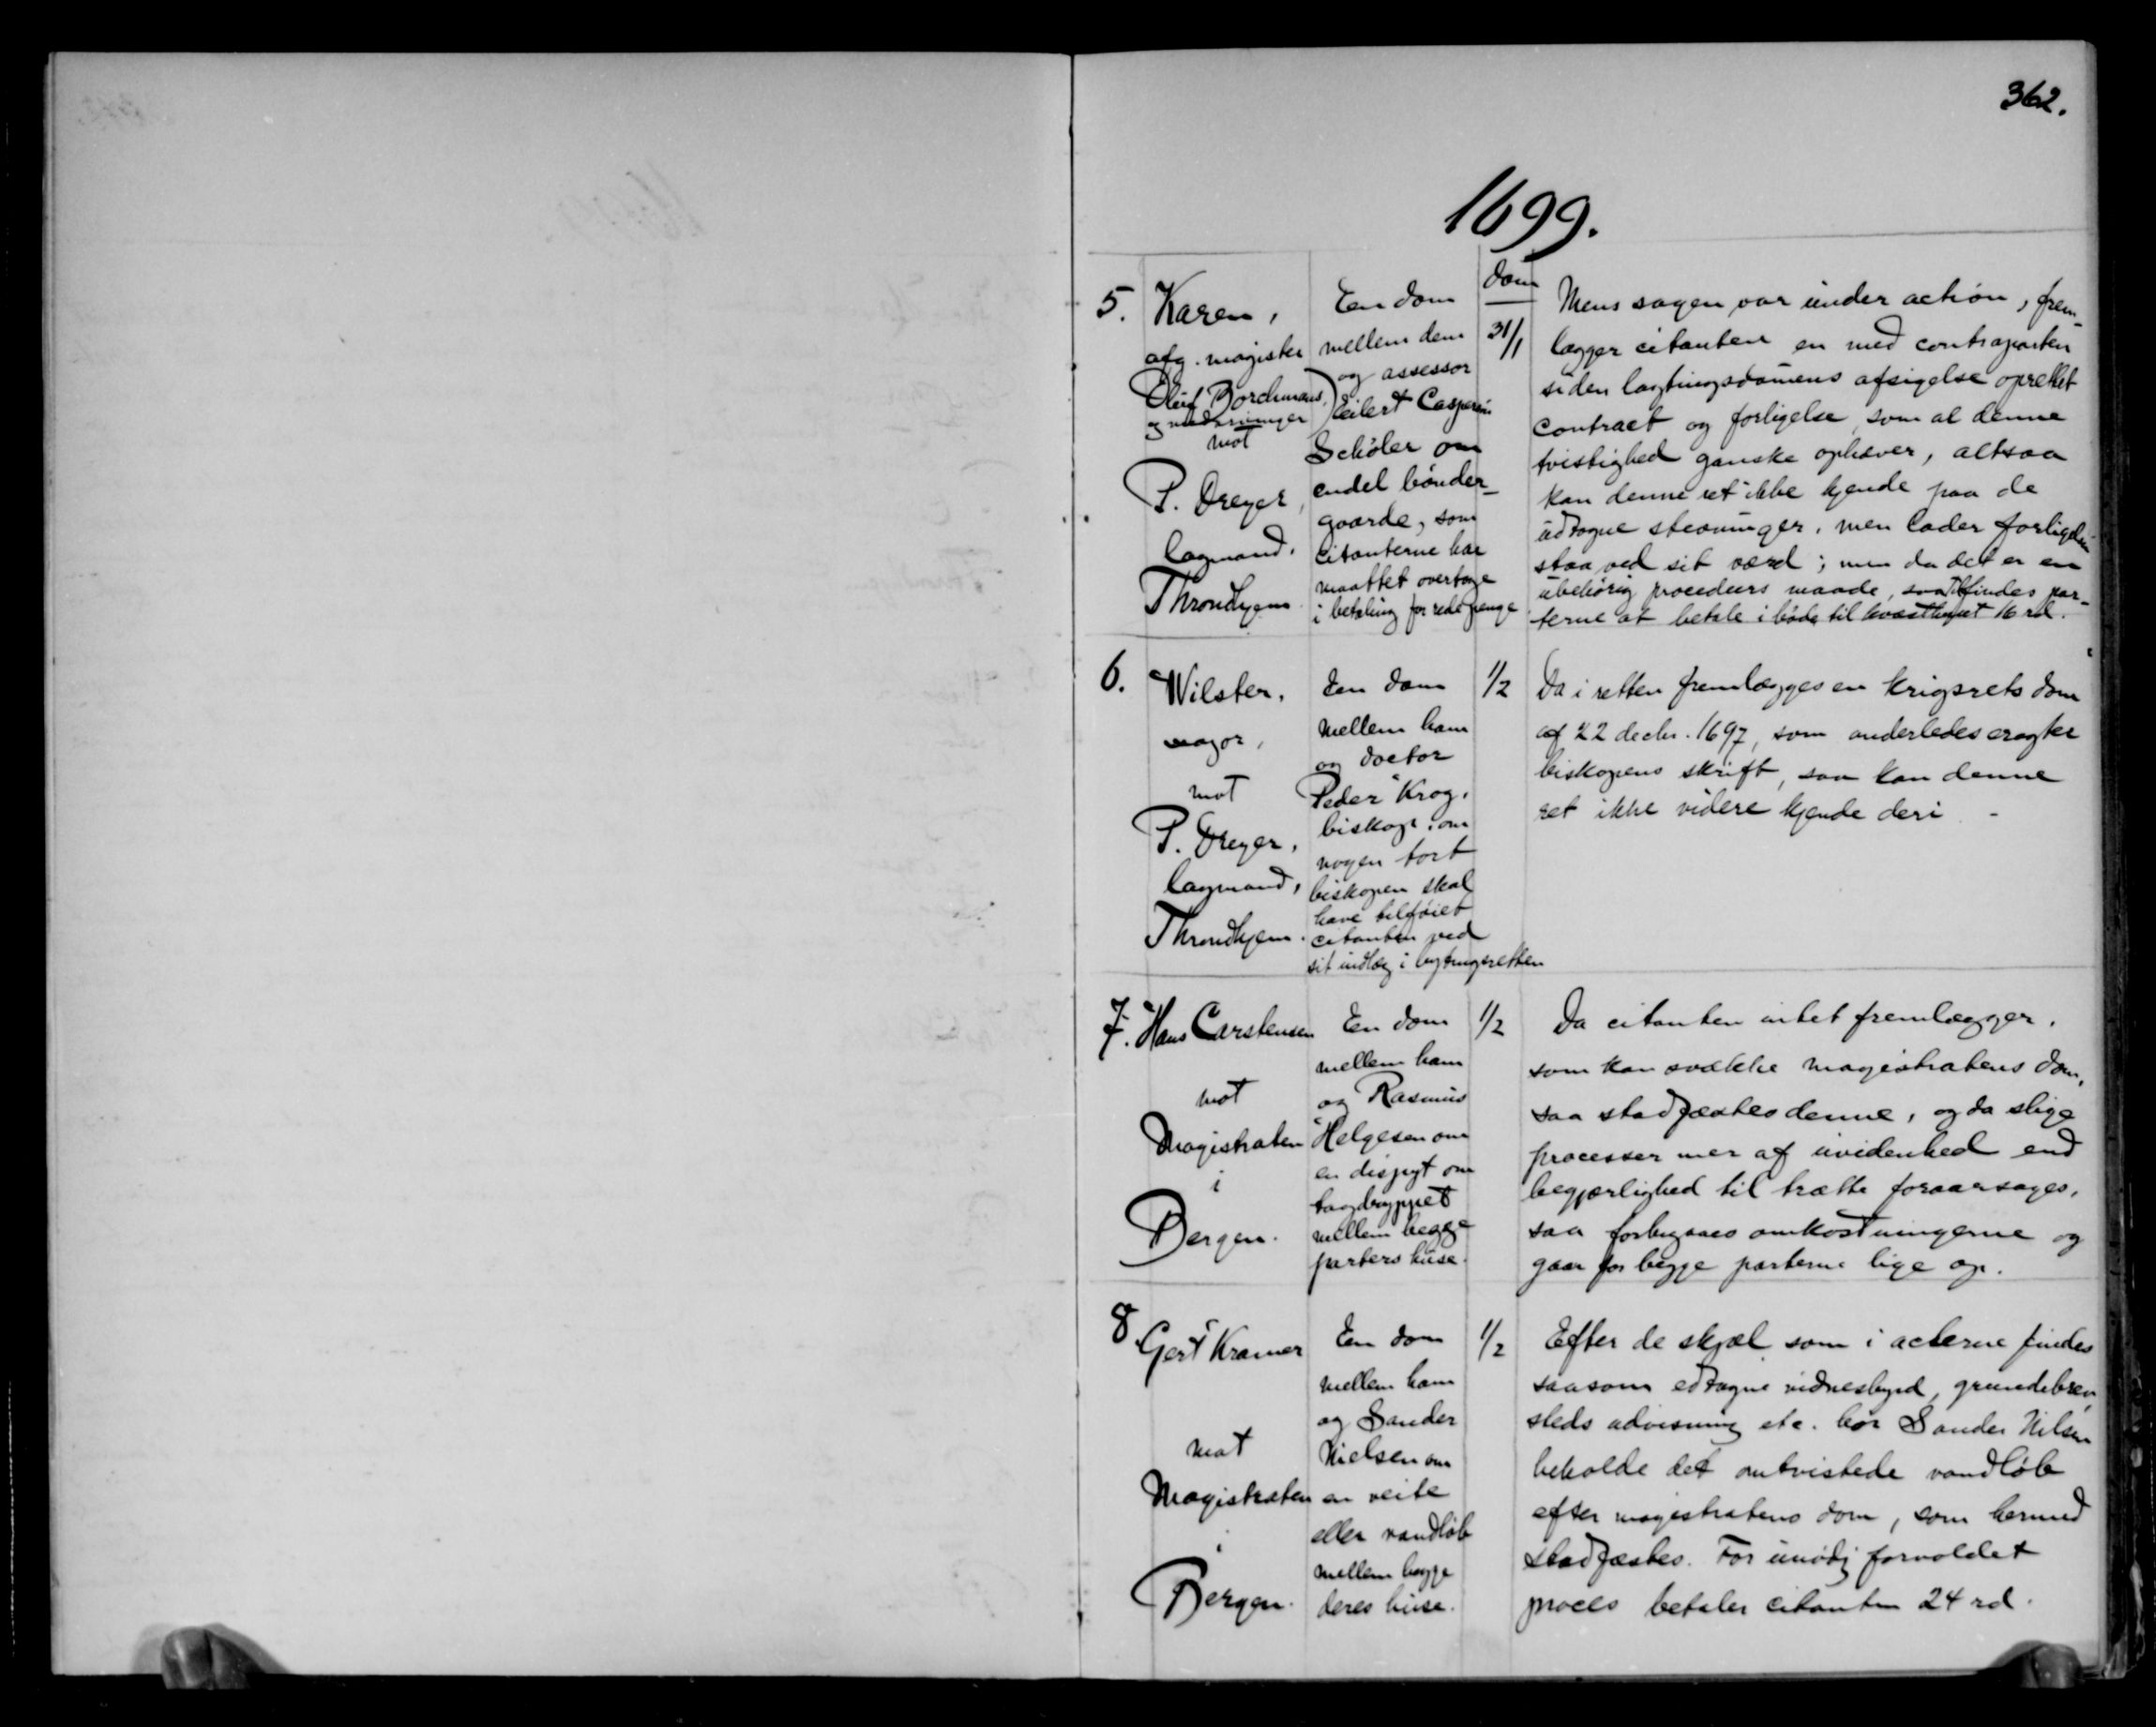 362.
1699.
5. Karen,
afg. magister
Oluf Borchmans,
og medarvinger
mot
P. Dreyer,
lagmand,
Throndhjem
En dom
mellem dem
og assessor
Eilert Caspersøn
Schøler om
endel bønder-
gaarde, som
citanterne har
maattet overtage
i betaling for rede penge
dom
31/1
Mens sagen var under action, frem-
lægger citanten en med contraparten
siden lagtingsdomens afsigelse oprettet
contract og forligelse, som al denne
tvistighed ganske ophæver, altsaa
kan denne ret ikke kjende paa de
udtagne stevninger, men lader forligelsen
staa ved sit værd; men da det er en
ubehørig procedeurs maade, saa tilfindes par-
terne at betale i bøde til kvæsthuset 16 rd.
6. Wilster,
major,
mot
P. Dreyer,
lagmand,
Throndhjem.
En dom
mellem ham
og doctor
Peder Krog,
biskop, om
nogen tort
biskopen skal
have tilføiet
citanten ved
sit indlæg i lagtingsretten
1/2
Da i retten fremlægges en krigsrets dom
af 22 decbr. 1697, som anderledes eragter
biskopens skrift, saa kan denne
ret ikke videre kjende deri.
7. Hans Carstensen
mot
Magistraten
i
Bergen.
En dom
mellem ham
og Rasmus
Helgesen om
en dispyt om
tagdryppet
mellem begge
parters huse.
1/2
Da citanten intet fremlægger,
som kan svække magistratens dom,
saa stadfæstes denne, og da slige
processer mer af uvidenhed end
begjærlighed til trætte foraarsages,
saa forbigaaes omkostningerne og
gaar for begge parterne lige op.
8. Gert Kramer
mot
Magistraten
i
Bergen.
En dom
mellem ham
og Sander
Nielsen om
en veite
eller vandløb
mellem begge
deres huse.
1/2
Efter de skjæl som i acterne findes
saasom edtagne vidnesbyrd, grundebrev,
steds udvisning etc. bør Sander Nilsen
beholde det omtvistede vandløb
efter magistratens dom, som hermed
stadfæstes. For unødig forvoldet
proces betaler citanten 24 rd.